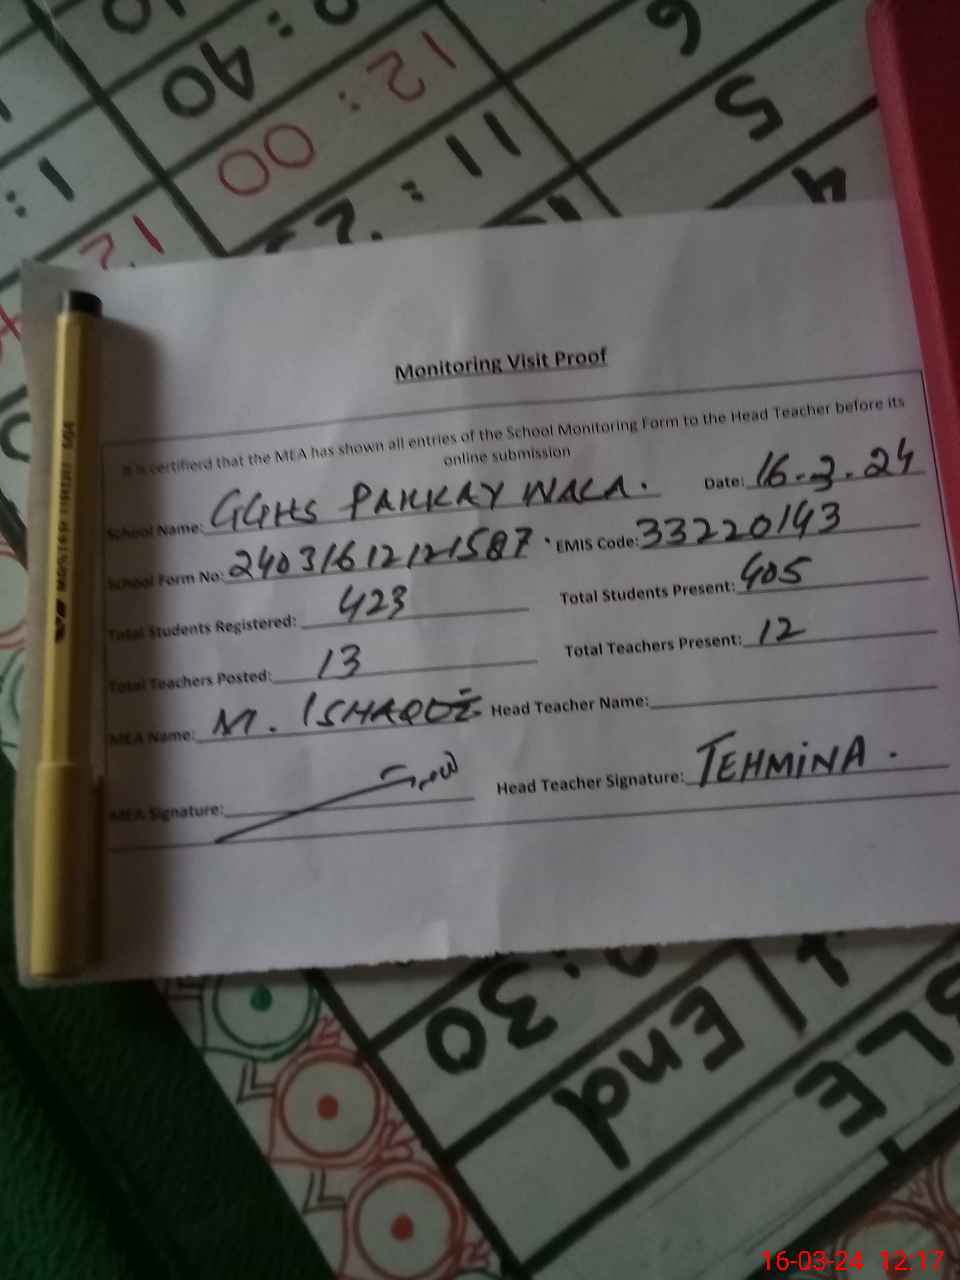 40
12:00
11:
12
6
5
4
Monitoring Visit Proof
It is certifierd that the MEA has shown all entries of the School Monitoring Form to the Head Teacher before its
online submission
School Name: GGHS PAKKAY WALA. Date: 16-3-24
School Form No: 24031612121587 EMIS Code: 33220143
Total Students Registered: 423 Total Students Present: 405
Total Teachers Posted: 13 Total Teachers Present: 12
MEA Name: M. ISHAQUE Head Teacher Name:
MEA Signature: Head Teacher Signature: TEHMINA.
:30
End
BLE
16-03-24 12:17